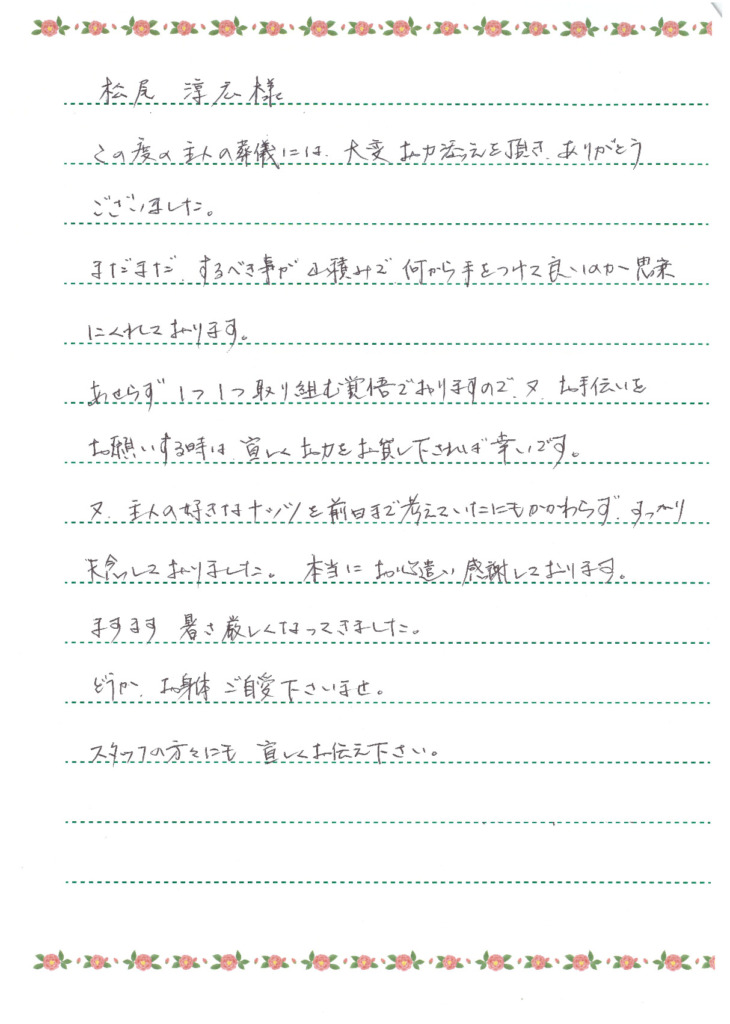 松尾 淳広様
この度の主人の葬儀には、大変お力添えを頂き、ありがとう
ございました。
まだまだ するべき事が 山積みで 何から手をつけて良いのか 思案
にくれております。
あせらず 1つ1つ取り組む覚悟でおりますので、又、お手伝いを
お願いする時は 宜しくお力をお貸し下されば幸いです。
又、主人の好きなナッツを前日まで考えていたにもかかわらず、すっかり
失念しておりました。 本当に お心遣い 感謝しております。
ますます 暑さ厳しくなってきました。
どうか、お身体 ご自愛下さいませ。
スタッフの方々にも 宜しくお伝え下さい。